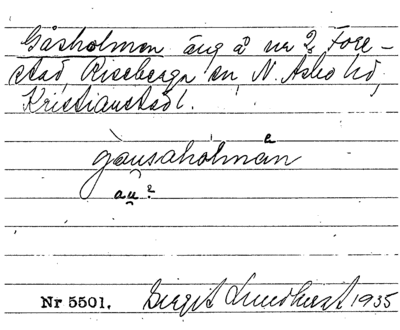 Gåsholmen äng å nr 2, Fore-
stad, Riseberga sn, N. Åsbo hd,
Kristianstad l.
gàusahòlmən
au?
Nr 5501. Birgit Lundkvist 1935